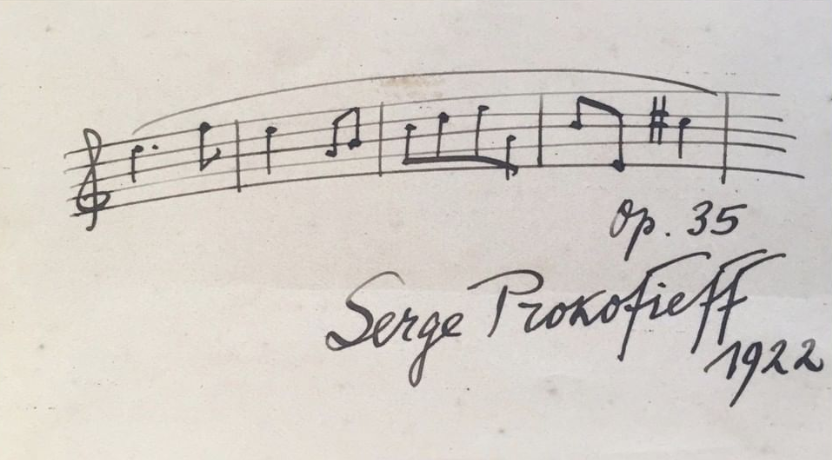 Op. 35
Serge Prokofieff
1922